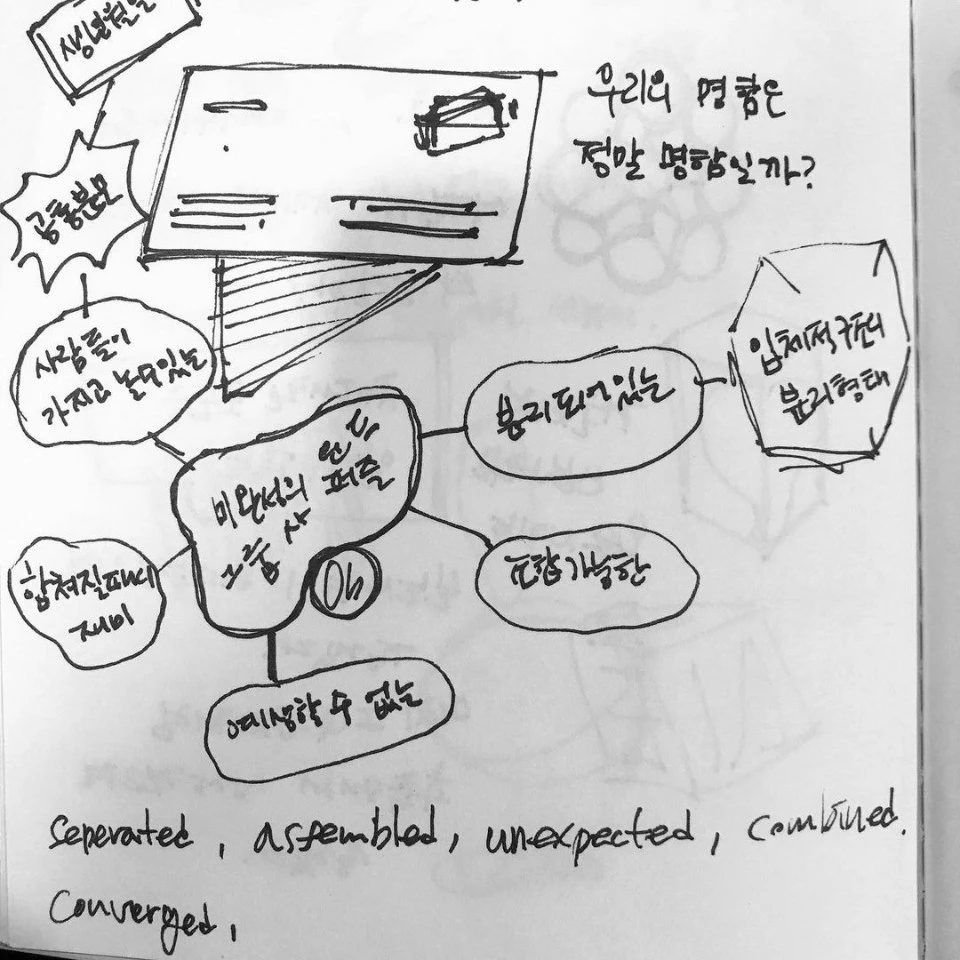 생년월일
우리의 명함은
정말 명함일까?
공통분모
사람들이
가지고 놀 수 있는
분리되어 있는
입체적
분리형태
미완성의
퍼즐
합쳐질 때의
재미
조합가능한
예상할 수 없는
seperated, assembled, unexpected, combined.
Converged,